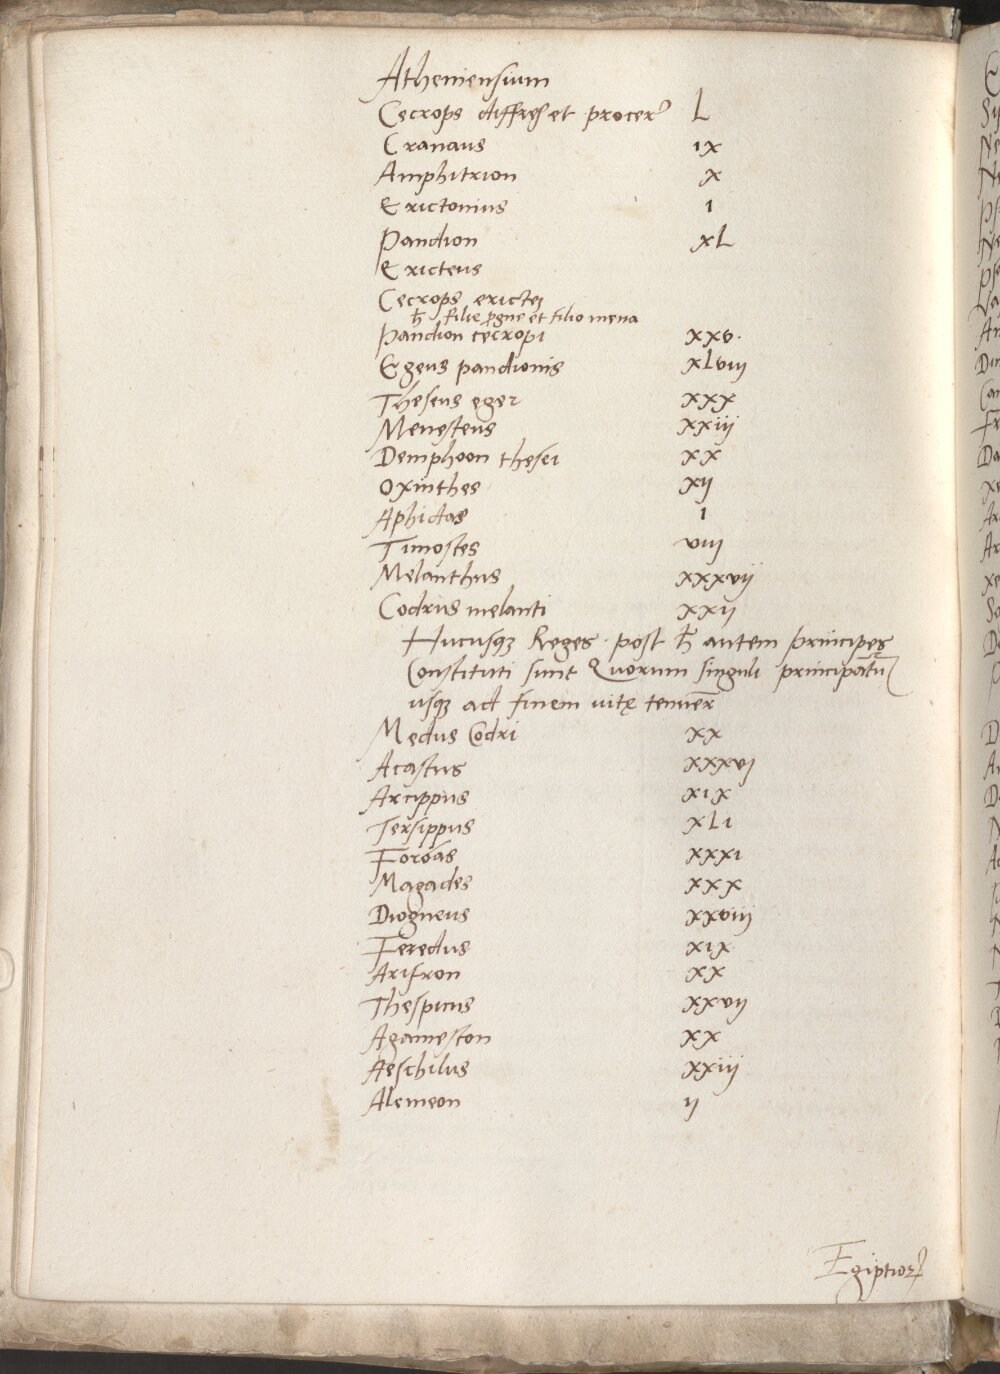 Atheniensium
Cecrops diffres et procer⁹ L
Cranaus ix
Amphitrion x
Erictonius i
Pandion xL
Ericteus
Cecrops erictei
h̄ filie progne et filiomena
Pandion cecropi xxv.
Egeus pandionis xLviij
Theseus egei xxx
Menesteus xxiij
Demphoon thesei xx
Oxinthes xij
Aphidas i
Timostes viij
Melanthus xxxvij
Codrus melanti xxij
Hucusqꝫ Reges. post h̄ autem principes
Constituti sunt Quorum singuli principatū
usqꝫ ad finem uitę tenuer̄
Medus Codri xx
Acastus xxxvj
Arcippus xix
Tersippus xLi
Forbas xxxi
Magades xxx
Diogneus xxviij
Feredus xix
Arifron xx
Thespicus xxvij
Agameston xx
Aeschilus xxiij
Alemeon ij
Egiptioꝝ